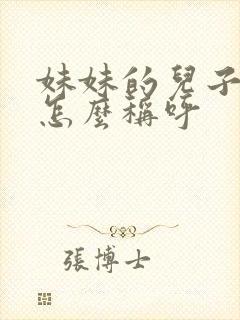 妹妹的兒子
怎麼稱呼
張博士